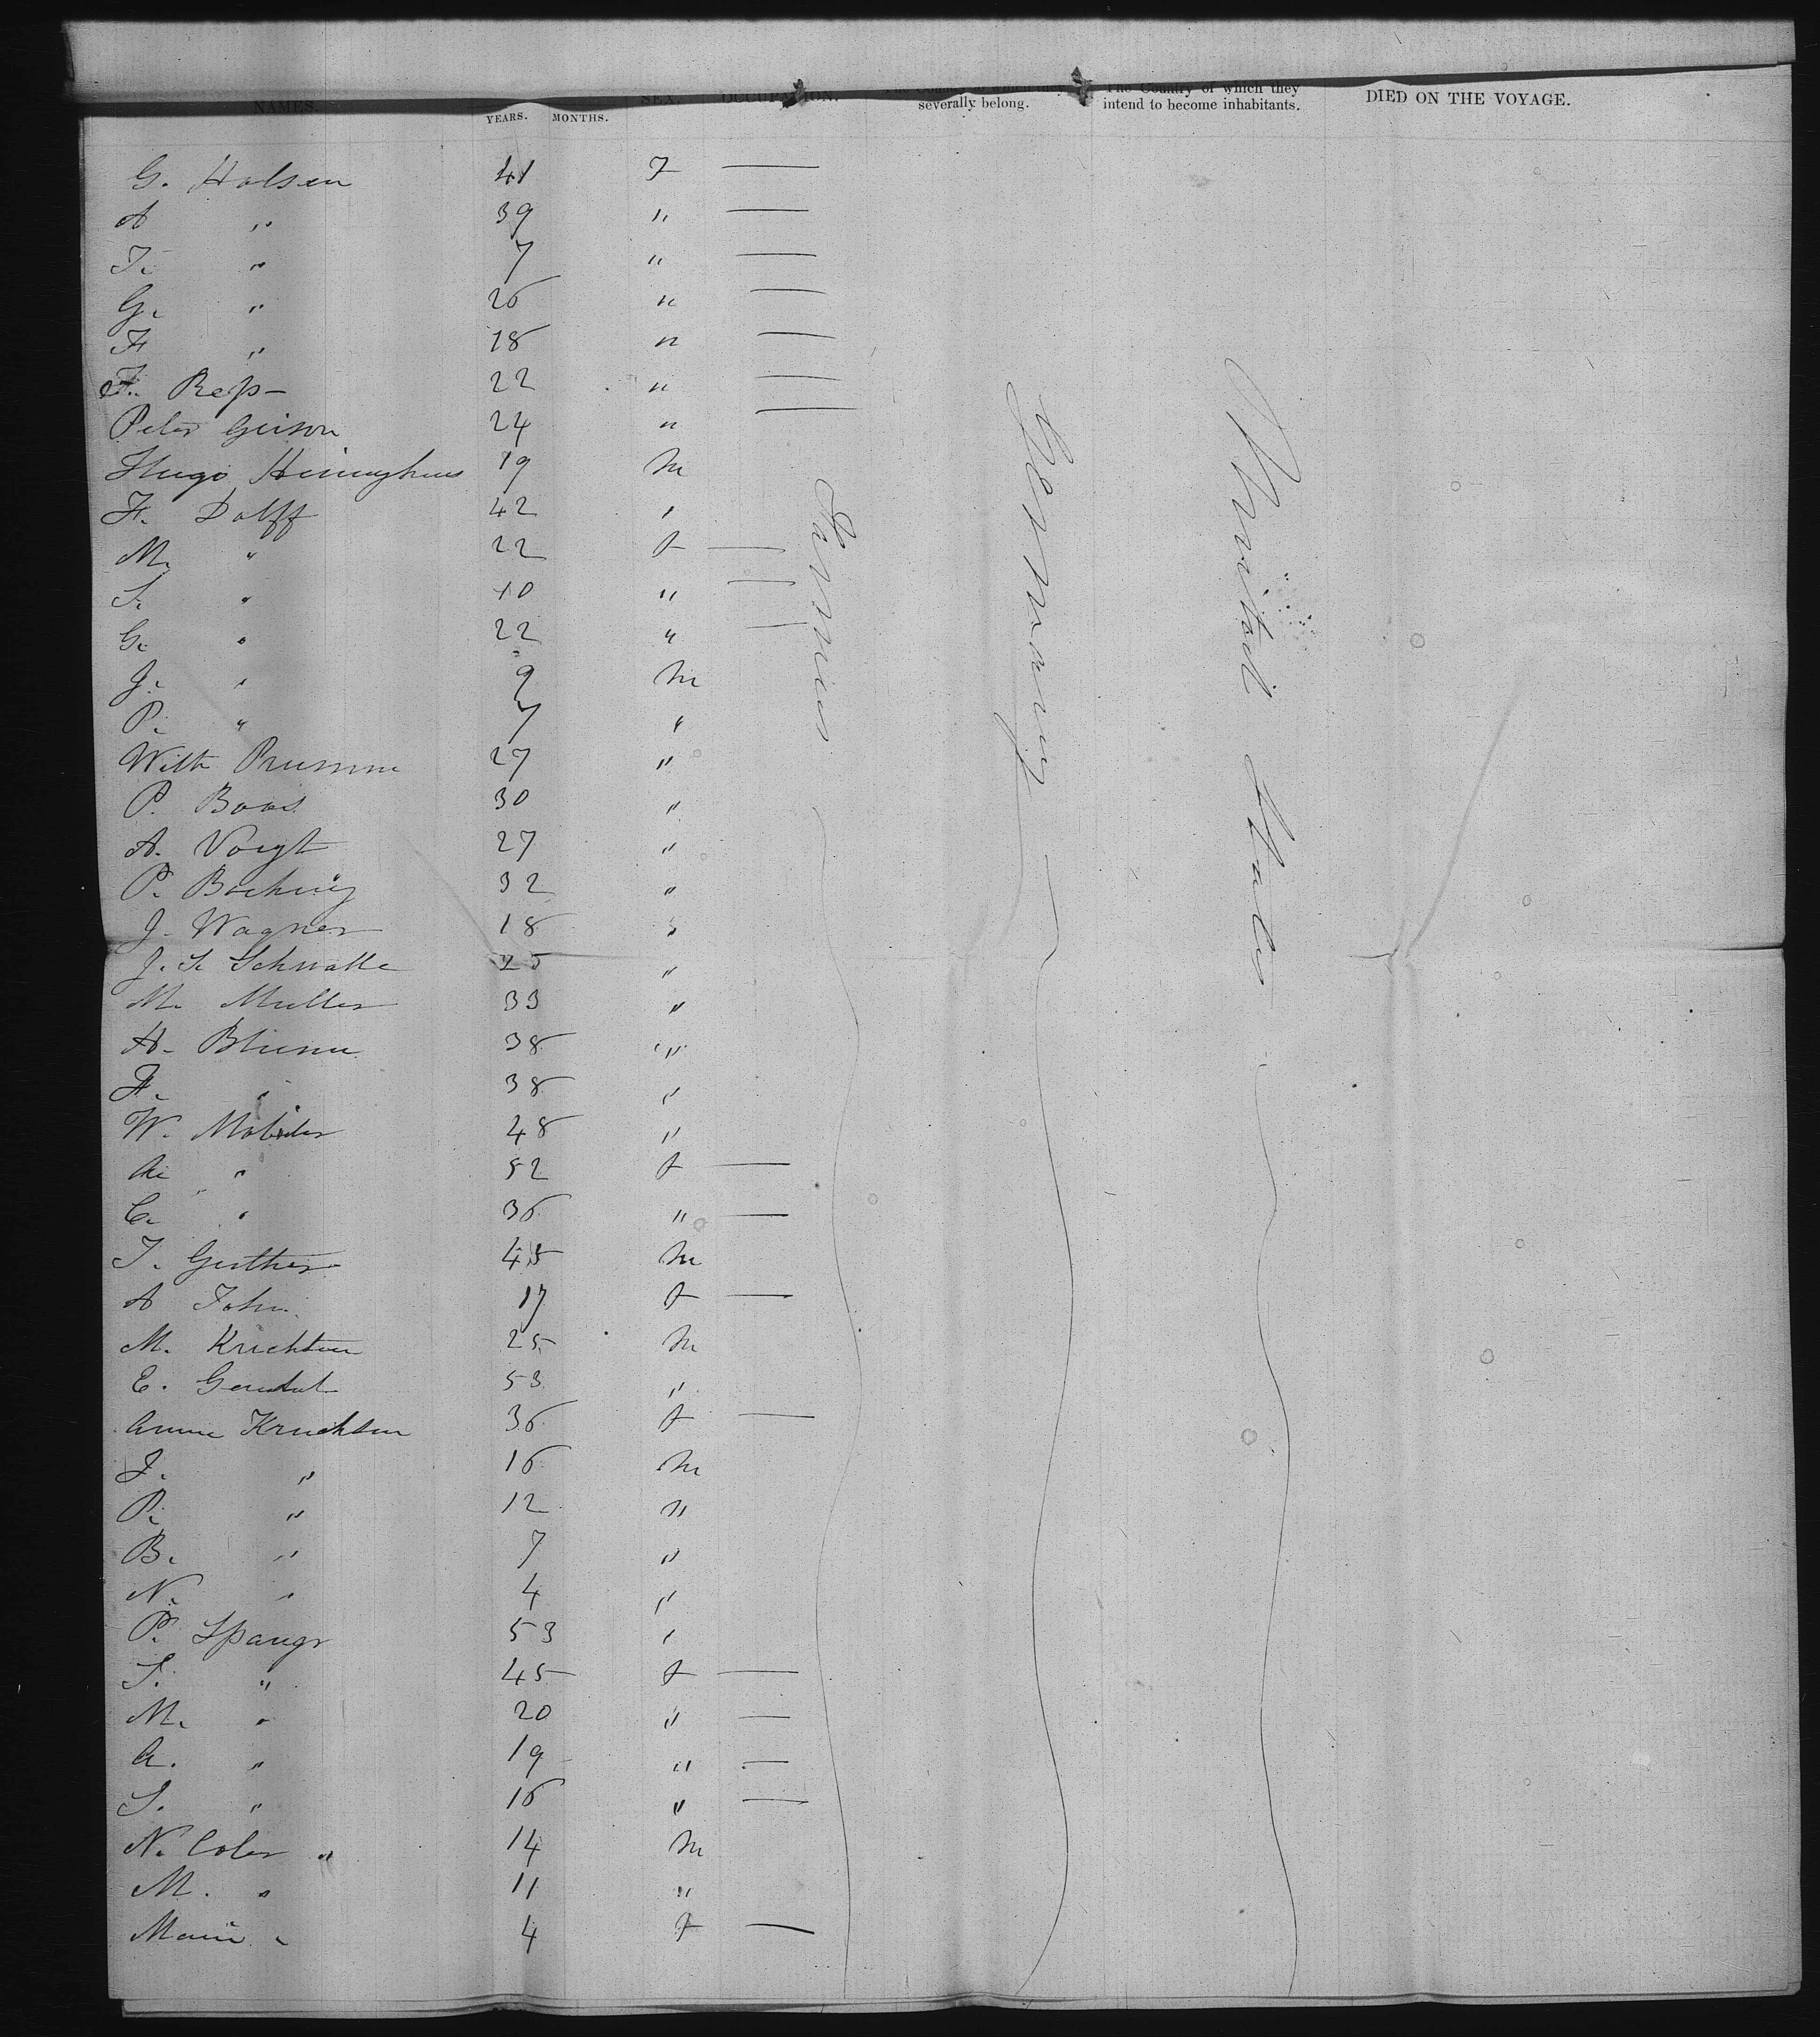 NAMES. SEX OCCUPATION. The Country of which they
YEARS. MONTHS. severally belong. intend to become inhabitants. DIED ON THE VOYAGE.
G. Halsen 41 F —
A " 39 " —
T. " 7 " —
G. " 26 " —
F " 18 " —
F. Reps 22 " —
Peter Geison 24 " —
Hugo 19 M
F. Dolff 42 "
M. " 22 F —
S. " 40 " —
G. " 22 " —
J. " 9 M
P. " 7 "
Wilh Prumm 27 "
P. Boos 30 "
A. Voigt 27 "
P. Boehmig 32 "
J. Wagner 18 "
J. S. Schwalle 25 "
M. Muller 33 "
H. Blumm 38 "
F. " 38 "
W. 48 "
A. " 52 F —
C. " 36 " —
T. Guther 45 M
A John 17 F —
M. Kruchten 25 M
E. 53 "
Anna Kruchten 36 F —
J. " 16 M
P. " 12 "
B. " 7 "
N. " 4 "
P. Spangr 53 "
S. " 45 F —
M. " 20 " —
A. " 19 " —
S. " 16 " —
N. Coler " 14 M
M. " 11 "
Marie " 4 F —
Farmers
Germany
United States